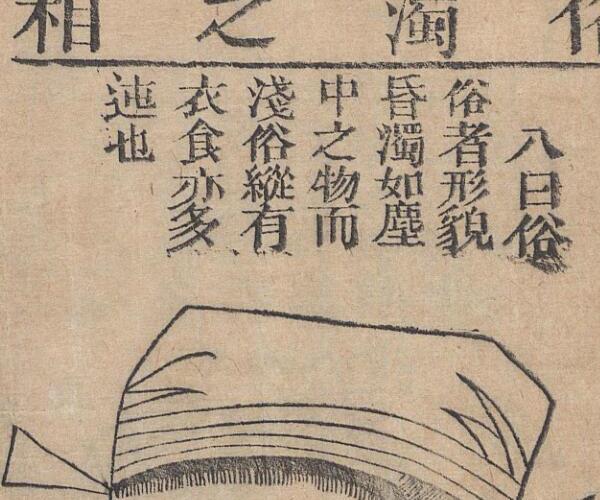 俗濁之相
八曰俗
俗者形貌
昏濁如塵
中之物而
淺俗縱有
衣食亦多
迍也